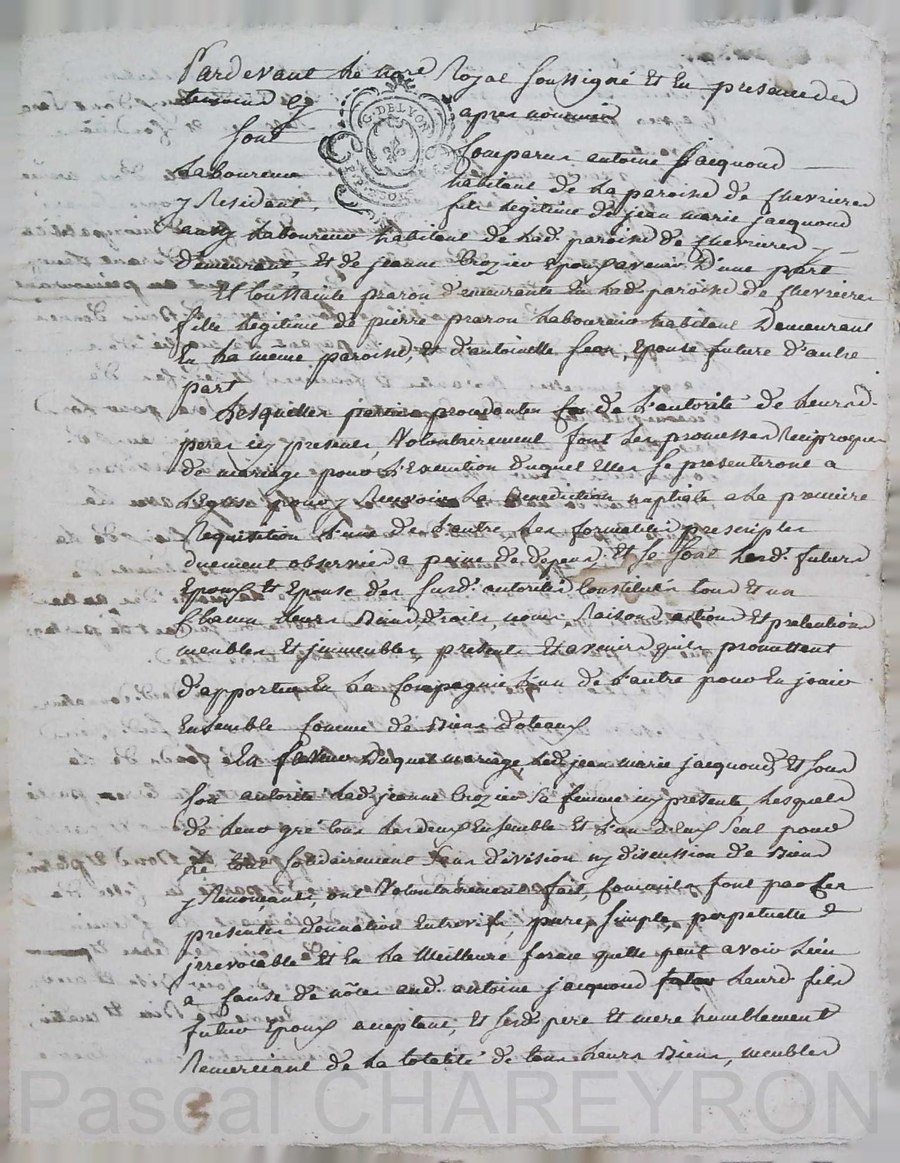 Pardevant Le nore Royal soussigné Et En presence des
temoins cy
G. DE LYON
apres nommés
sont
Comparus antoine jacquond
Laboureur
habitant de La paroisse de chevrieres
y Residant,
fils Legitime de jean marie jacquond
aussy Laboureur habitant de Lad. paroisse de chevrieres y
demeurant, et de jeanne Crozier Epoux avenir D'une part
Et Toussainte praron demeurante En Lad. paroisse de chevrieres
fille Legitime de pierre praron Laboureur habitant Demeurant
En La meme paroisse, Et d'antoinette jean, Epouse future d'autre
part
Lesquelles parties procedantes de L'autorité de Leursd.
peres icy presents, Volontairement font Les promesses Reciproques
de mariage pour L'Execution duquel Elles se presenteront a
L'Eglise pour y Recevoir La Benediction nuptiale a La premiere
Requisition L'une de L'autre Les formalités prescriptes
duement observées a peine de depens, Et se sont Lesd. futurs
Epoux Et Epouse des susd. autorités Constitués tous Et un
Chacun Leurs Biens, droits, noms, Raisons, actions Et pretentions
meubles, Et jmmeubles, presents Et avenirs quils promettent
d'apporter En La Compagnie L'un de L'autre pour En jouir
Ensemble Comme de Biens dotaux
En faveur duquel mariage Led. jean marie jacquond, Et sous
son autorité Lad. jeanne Crozier sa femme icy presente, Lesquels
de Leur gré tous Les deux Ensemble Et L'un d'Eux seul pour
Le tout solidairement sans division ny discussion de Biens
y Renonçants, ont Volontairement fait, Comme ils font par Ces
presentes donation Entrevifs, pure, simple, perpetuelle &
jrrevocable Et En La Meilleure forme quelle peut avoir Lieu
a Cause de nôces aud. antoine jacquond Leurd. fils
futur Epoux acceptant, Et sesd. pere Et mere humblement
Remerciant de La totalité de tous Leurs Biens, meubles
Pascal CHAREYRON